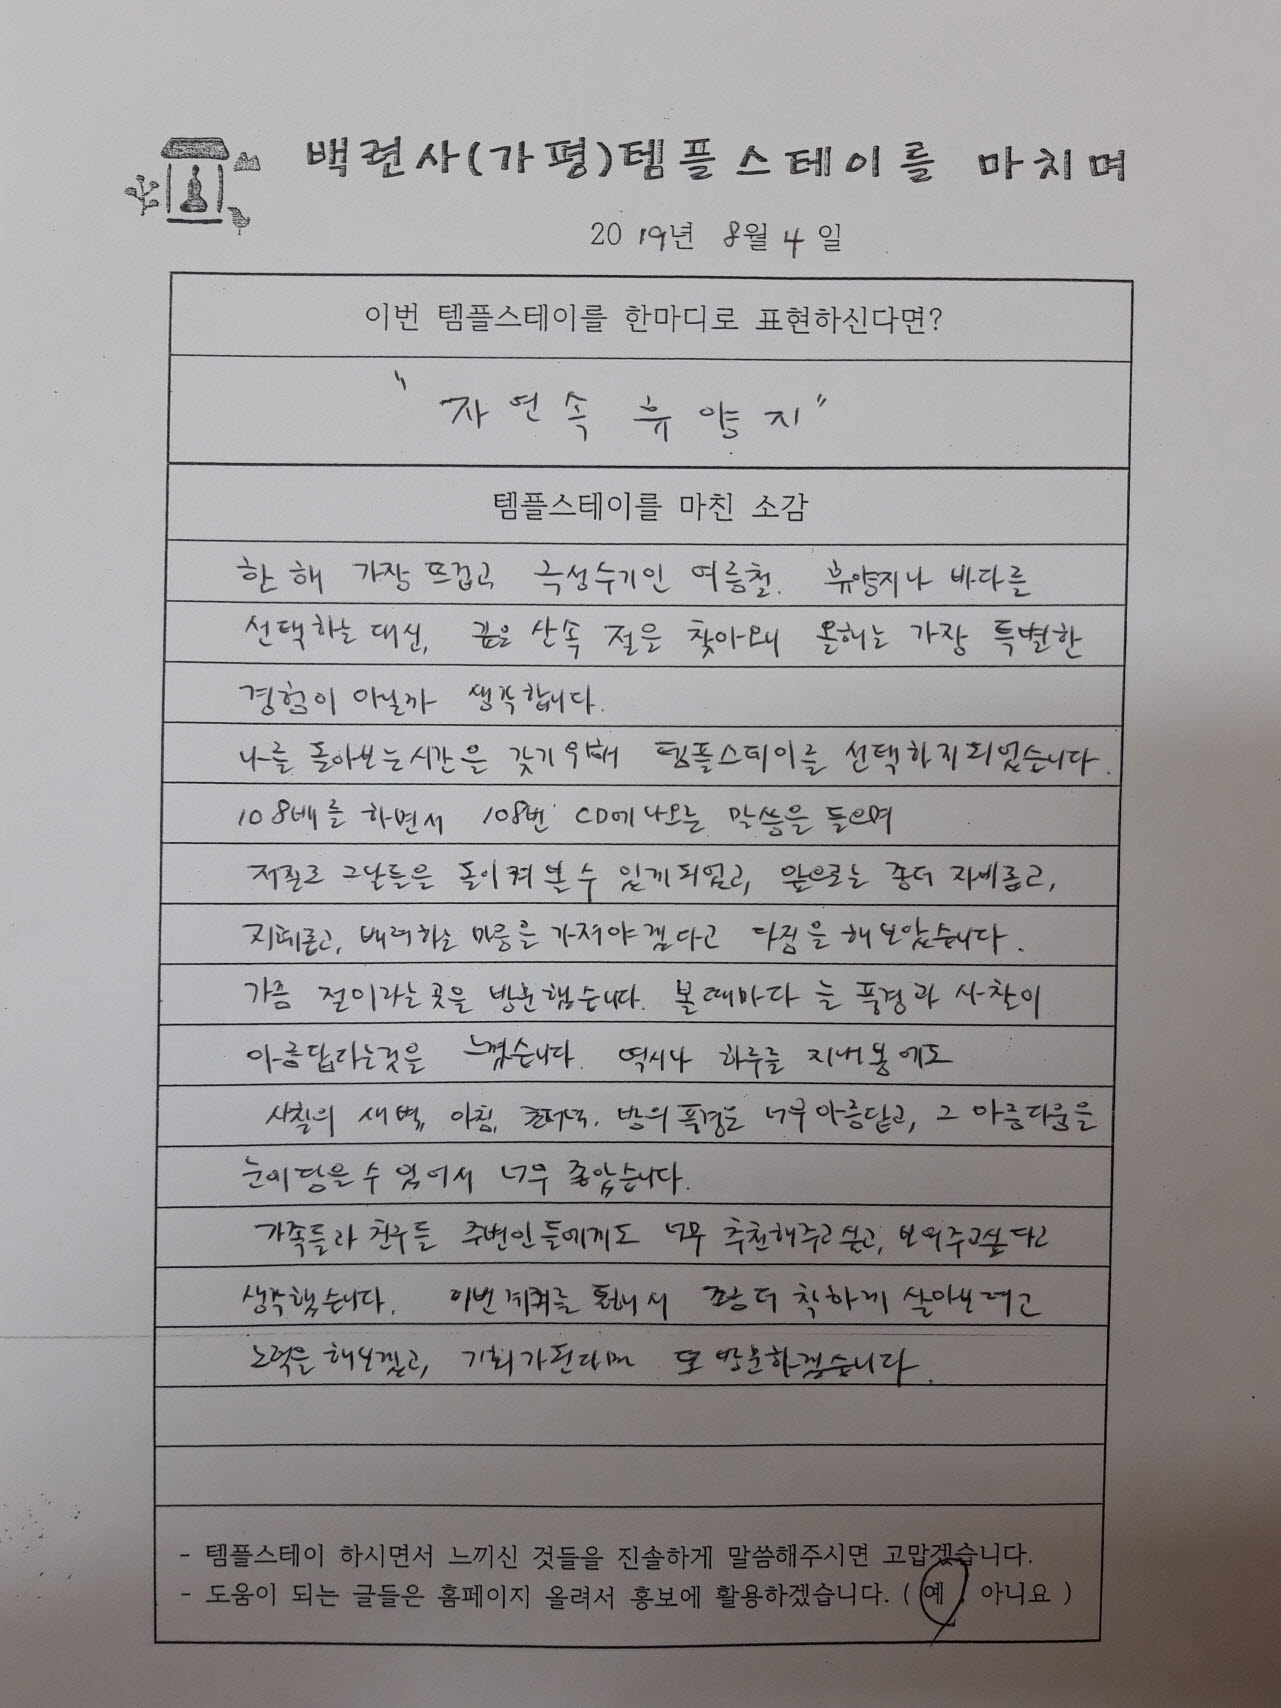 백련사(가평)템플스테이를 마치며
2019년 8월 4일
이번 템플스테이를 한마디로 표현하신다면?
"자연속 휴양지"
템플스테이를 마친 소감
한 해 가장 뜨겁고 극성수기인 여름철. 휴양지나 바다를
선택하는 대신, 깊은 산속 절을 찾아와 올해는 가장 특별한
경험이 아닐까 생각합니다.
나를 돌아보는 시간을 갖기 위해 템플스테이를 선택하게되었습니다.
108배를 하면서 108번 CD에 나오는 말씀을 들으며
저절로 그날들을 돌이켜 볼 수 있게되었고, 앞으로는 좀더 자비롭고,
지혜롭고, 배려하는 마음을 가져야겠다고 다짐을 해보았습니다.
가끔 절이라는 곳을 방문했습니다. 볼때마다 늘 풍경과 사찰이
아름답다는것을 느꼈습니다. 역시나 하루를 지내봄에도
사찰의 새벽, 아침, 밤의 풍경도 너무 아름답고, 그 아름다움을
눈에 담을 수 있어서 너무 좋았습니다.
가족들과 친구들 주변인들에게도 너무 추천해주고싶고, 보여주고싶다고
생각했습니다. 이번 계기를 통해서 좀더 착하게 살아보려고
노력을 해보겠고, 기회가된다면 또 방문하겠습니다.
- 템플스테이 하시면서 느끼신 것들을 진솔하게 말씀해주시면 고맙겠습니다.
- 도움이 되는 글들은 홈페이지 올려서 홍보에 활용하겠습니다. ( 예 , 아니요 )